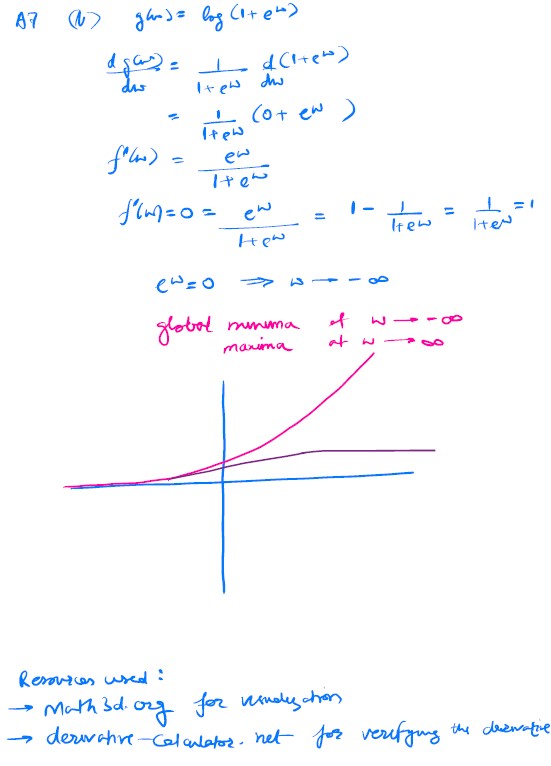 A7 (b) g(w) = log (1 + e^w)
d g(w)/dw = 1/(1+e^w) d(1+e^w)/dw
= 1/(1+e^w) (0 + e^w)
f'(w) = e^w/(1+e^w)
f'(w) = 0 = e^w/(1+e^w) = 1 - 1/(1+e^w) = 1/(1+e^w) = 1
e^w = 0 ⟹ w → -∞
global minima at w → -∞
maxima at w → ∞
Resources used :
→ Math3d.org for
→ derivative-calculator.net for verifying the derivative